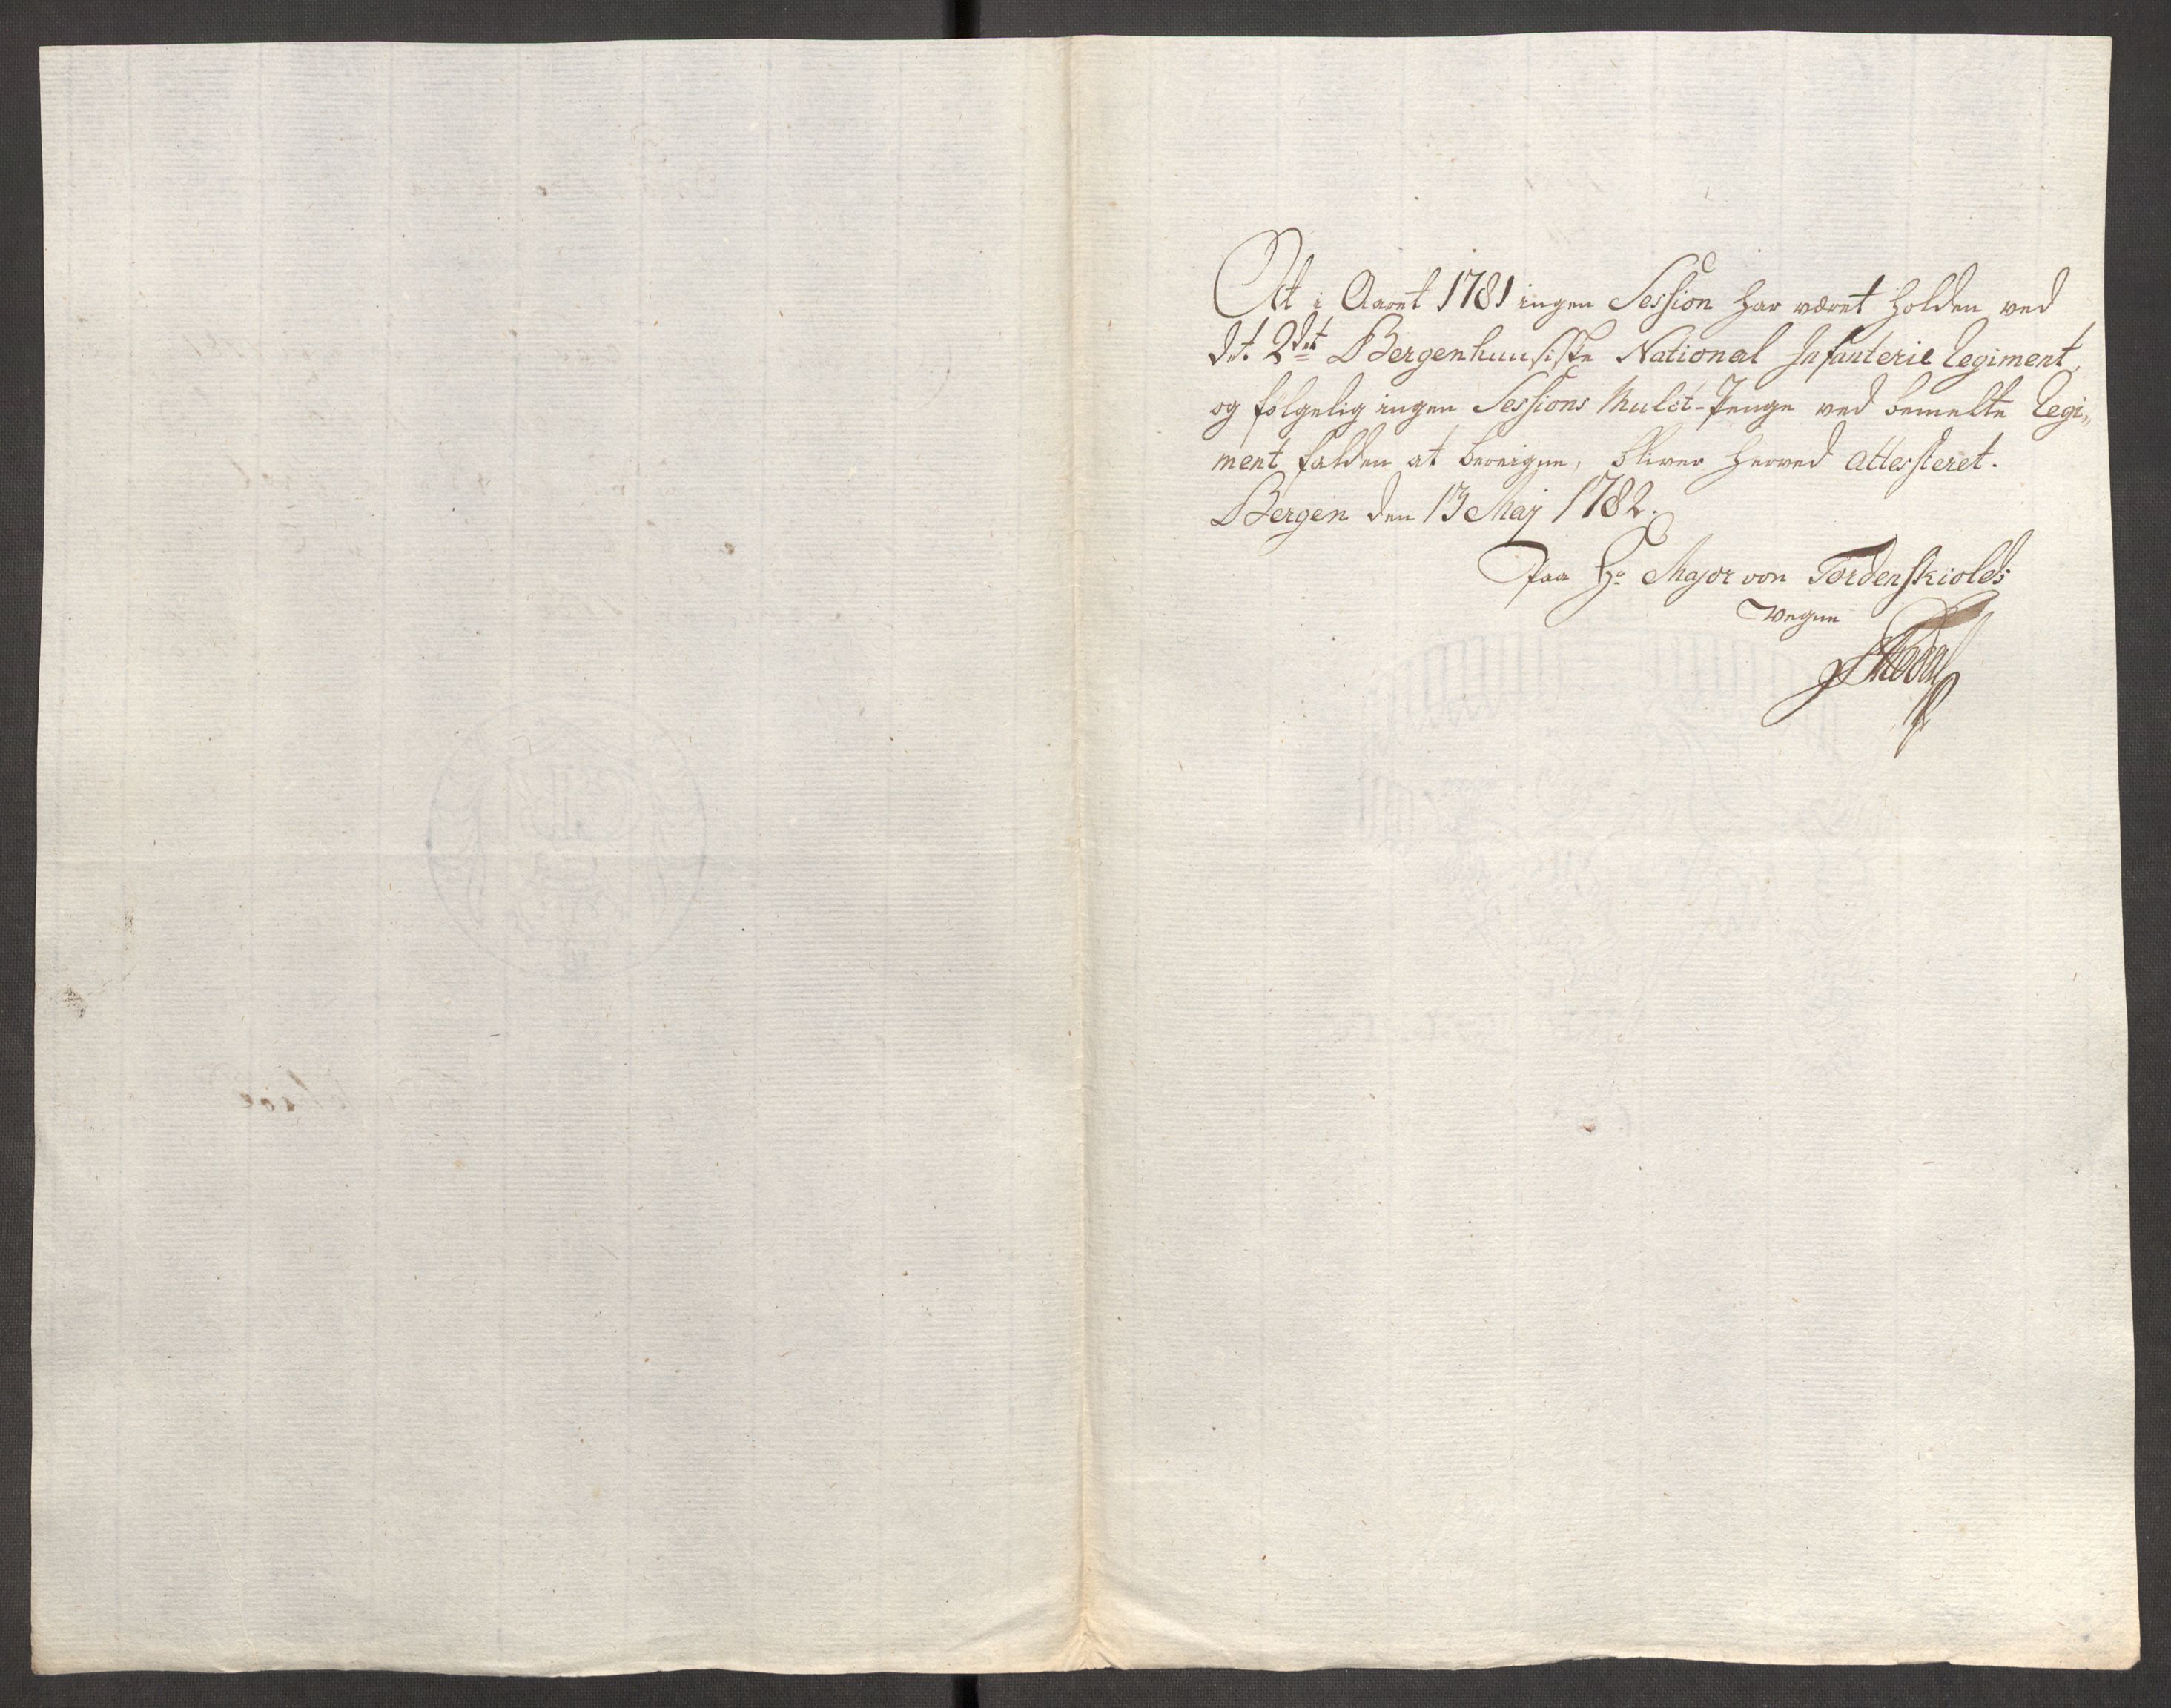 At i Aaret 1781 ingen Session har været holden ved
det 2det Bergenhuusiske National Infanterie Regiment,
og følgelig ingen Sessions Mulct-Penge ved bemelte Regi„
ment falden at bereigne, bliver herved attesteret.
Bergen den 13 Maj 1782.
Paa Hr Major von Tordenskiolds
Vegne